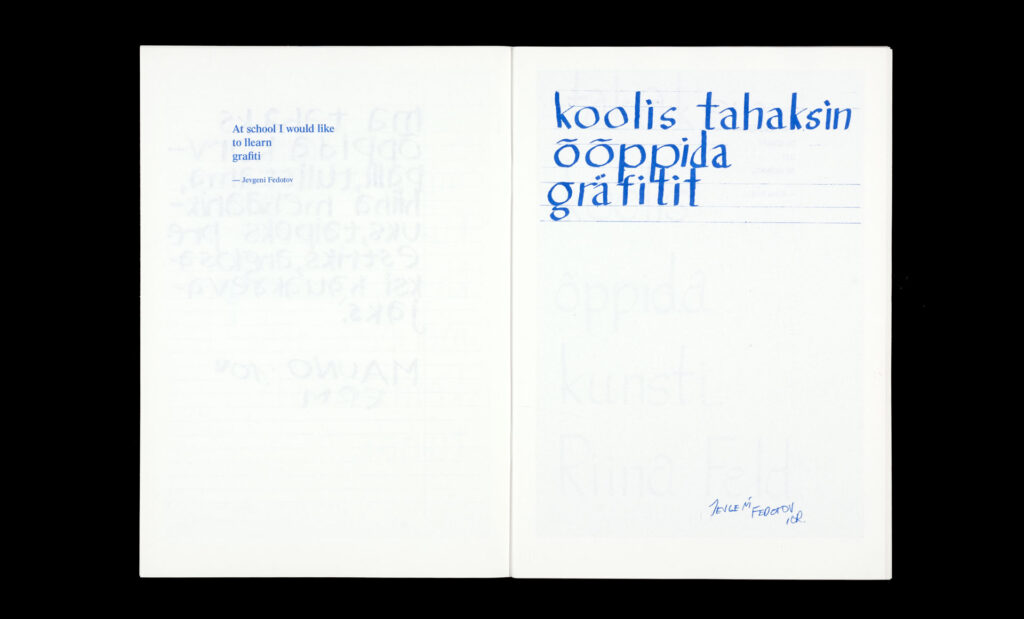 At school I would like
to llearn
grafiti
— Jevgeni Fedotov
koolis tahaksin
õõppida
gräfitit
õppida
kunsti
Riina Feld
JEVGENI
FEDOTOV
10R